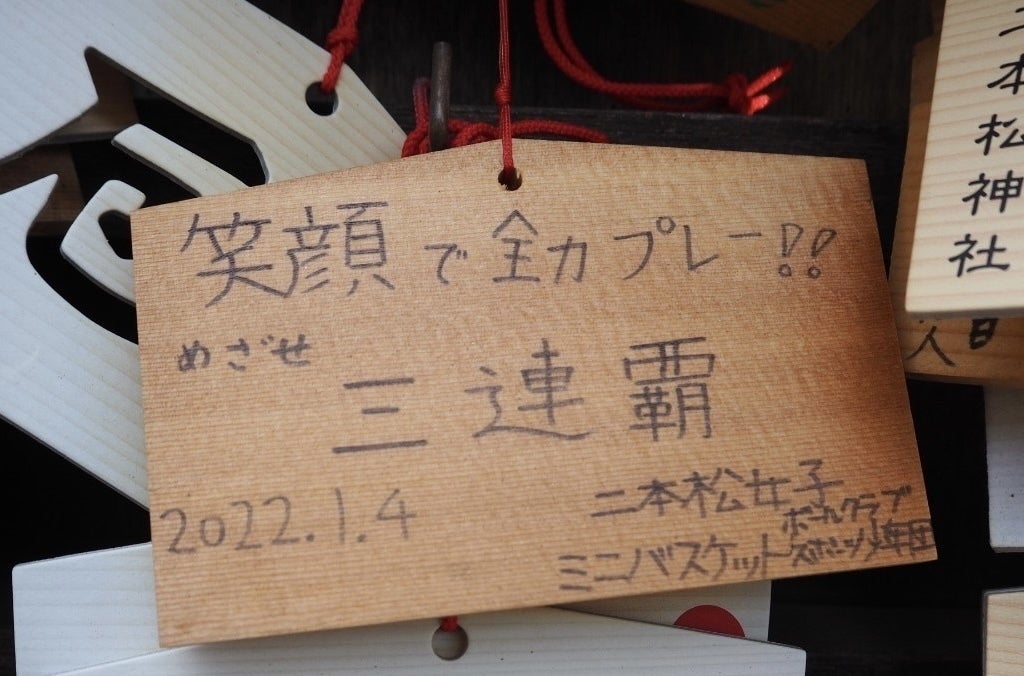 笑顔で全力プレー!!
めざせ
三連覇
2022.1.4
二本松女子
ミニバスケットボールクラブ
スポーツ少年団
二本松神社
人
日